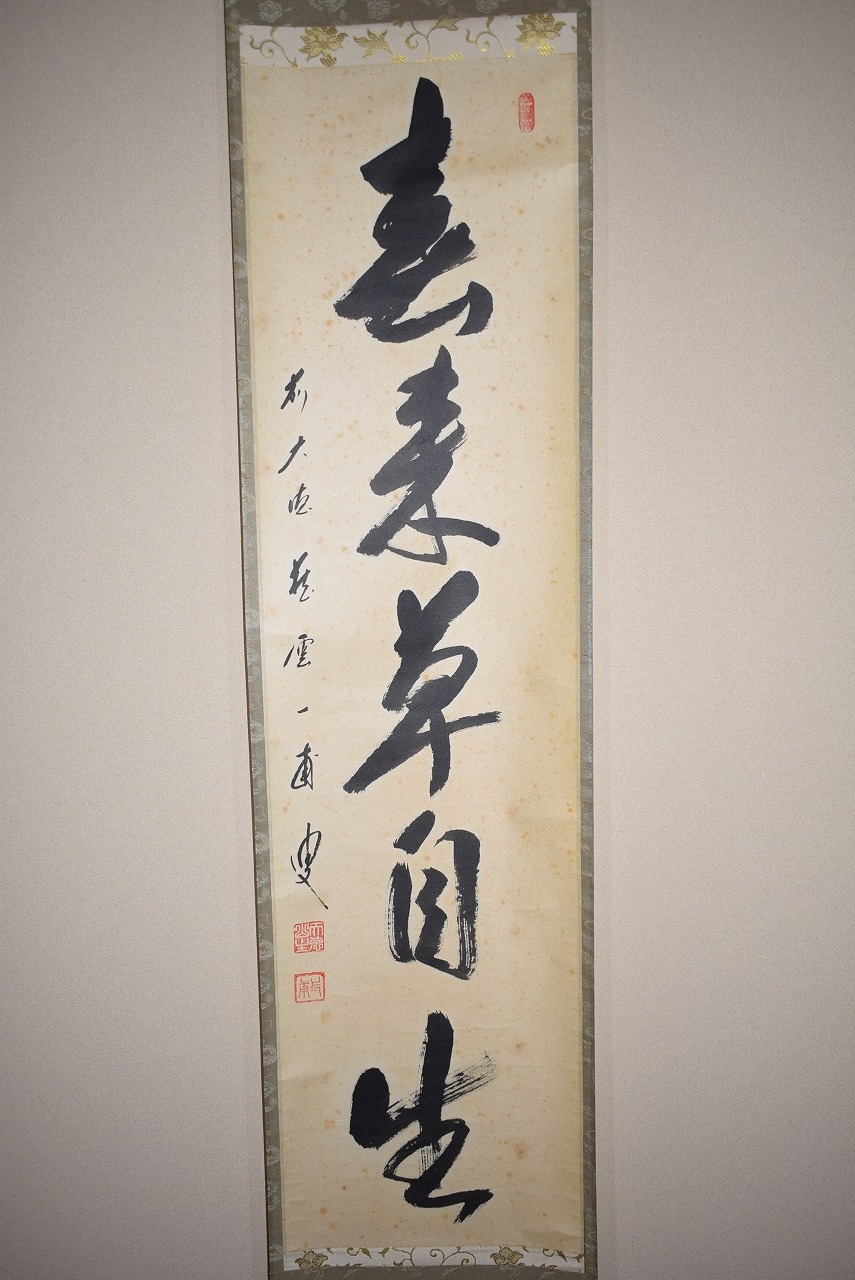 春来草自生
前大徳荘雲一甫叟